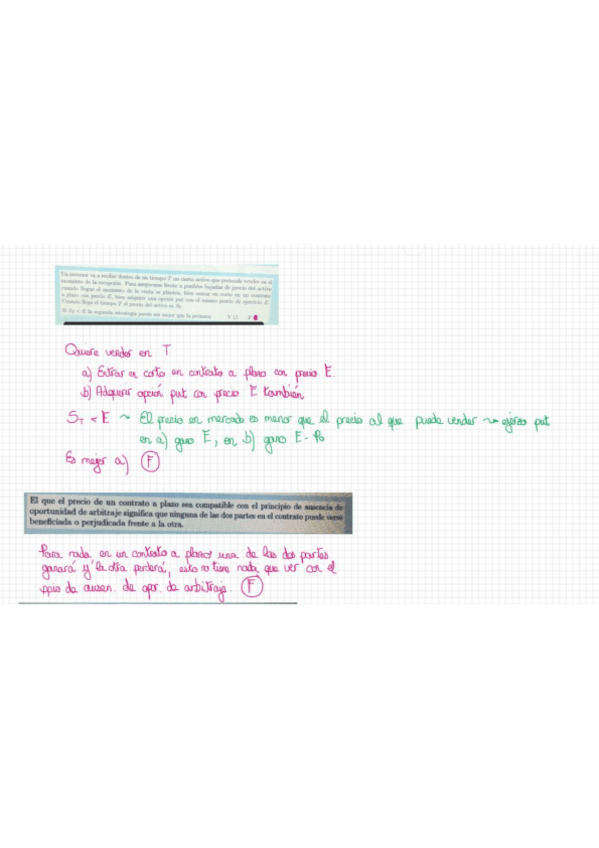 Un inversor va a recibir dentro de un tiempo T un cierto activo que pretende vender en el
momento de la recepción. Para asegurarse frente a posibles bajadas de precio del activo
cuando llegue el momento de la venta se plantea, bien entrar en corto en un contrato
a plazo con precio E, bien adquirir una opción put con el mismo precio de ejercicio E.
Cuando llega el tiempo T el precio del activo es S_T.
Si S_T < E la segunda estrategia puede ser mejor que la primera. V F
Quiere vender en T
a) Entrar en corto en contrato a plazo con precio E.
b) Adquirir opción put con precio E también
S_T < E ~ El precio en mercado es menor que el precio al que puede vender ~ ejerzo put
en a) gano E, en b) gano E - P₀
Es mejor a) F
El que el precio de un contrato a plazo sea compatible con el principio de ausencia de
oportunidad de arbitraje significa que ninguna de las dos partes en el contrato puede verse
beneficiada o perjudicada frente a la otra.
Para nada, en un contrato a plazo una de las dos partes
ganará y la otra perderá, esto no tiene nada que ver con el
ppio de ausen. de opr. de arbitraje. F